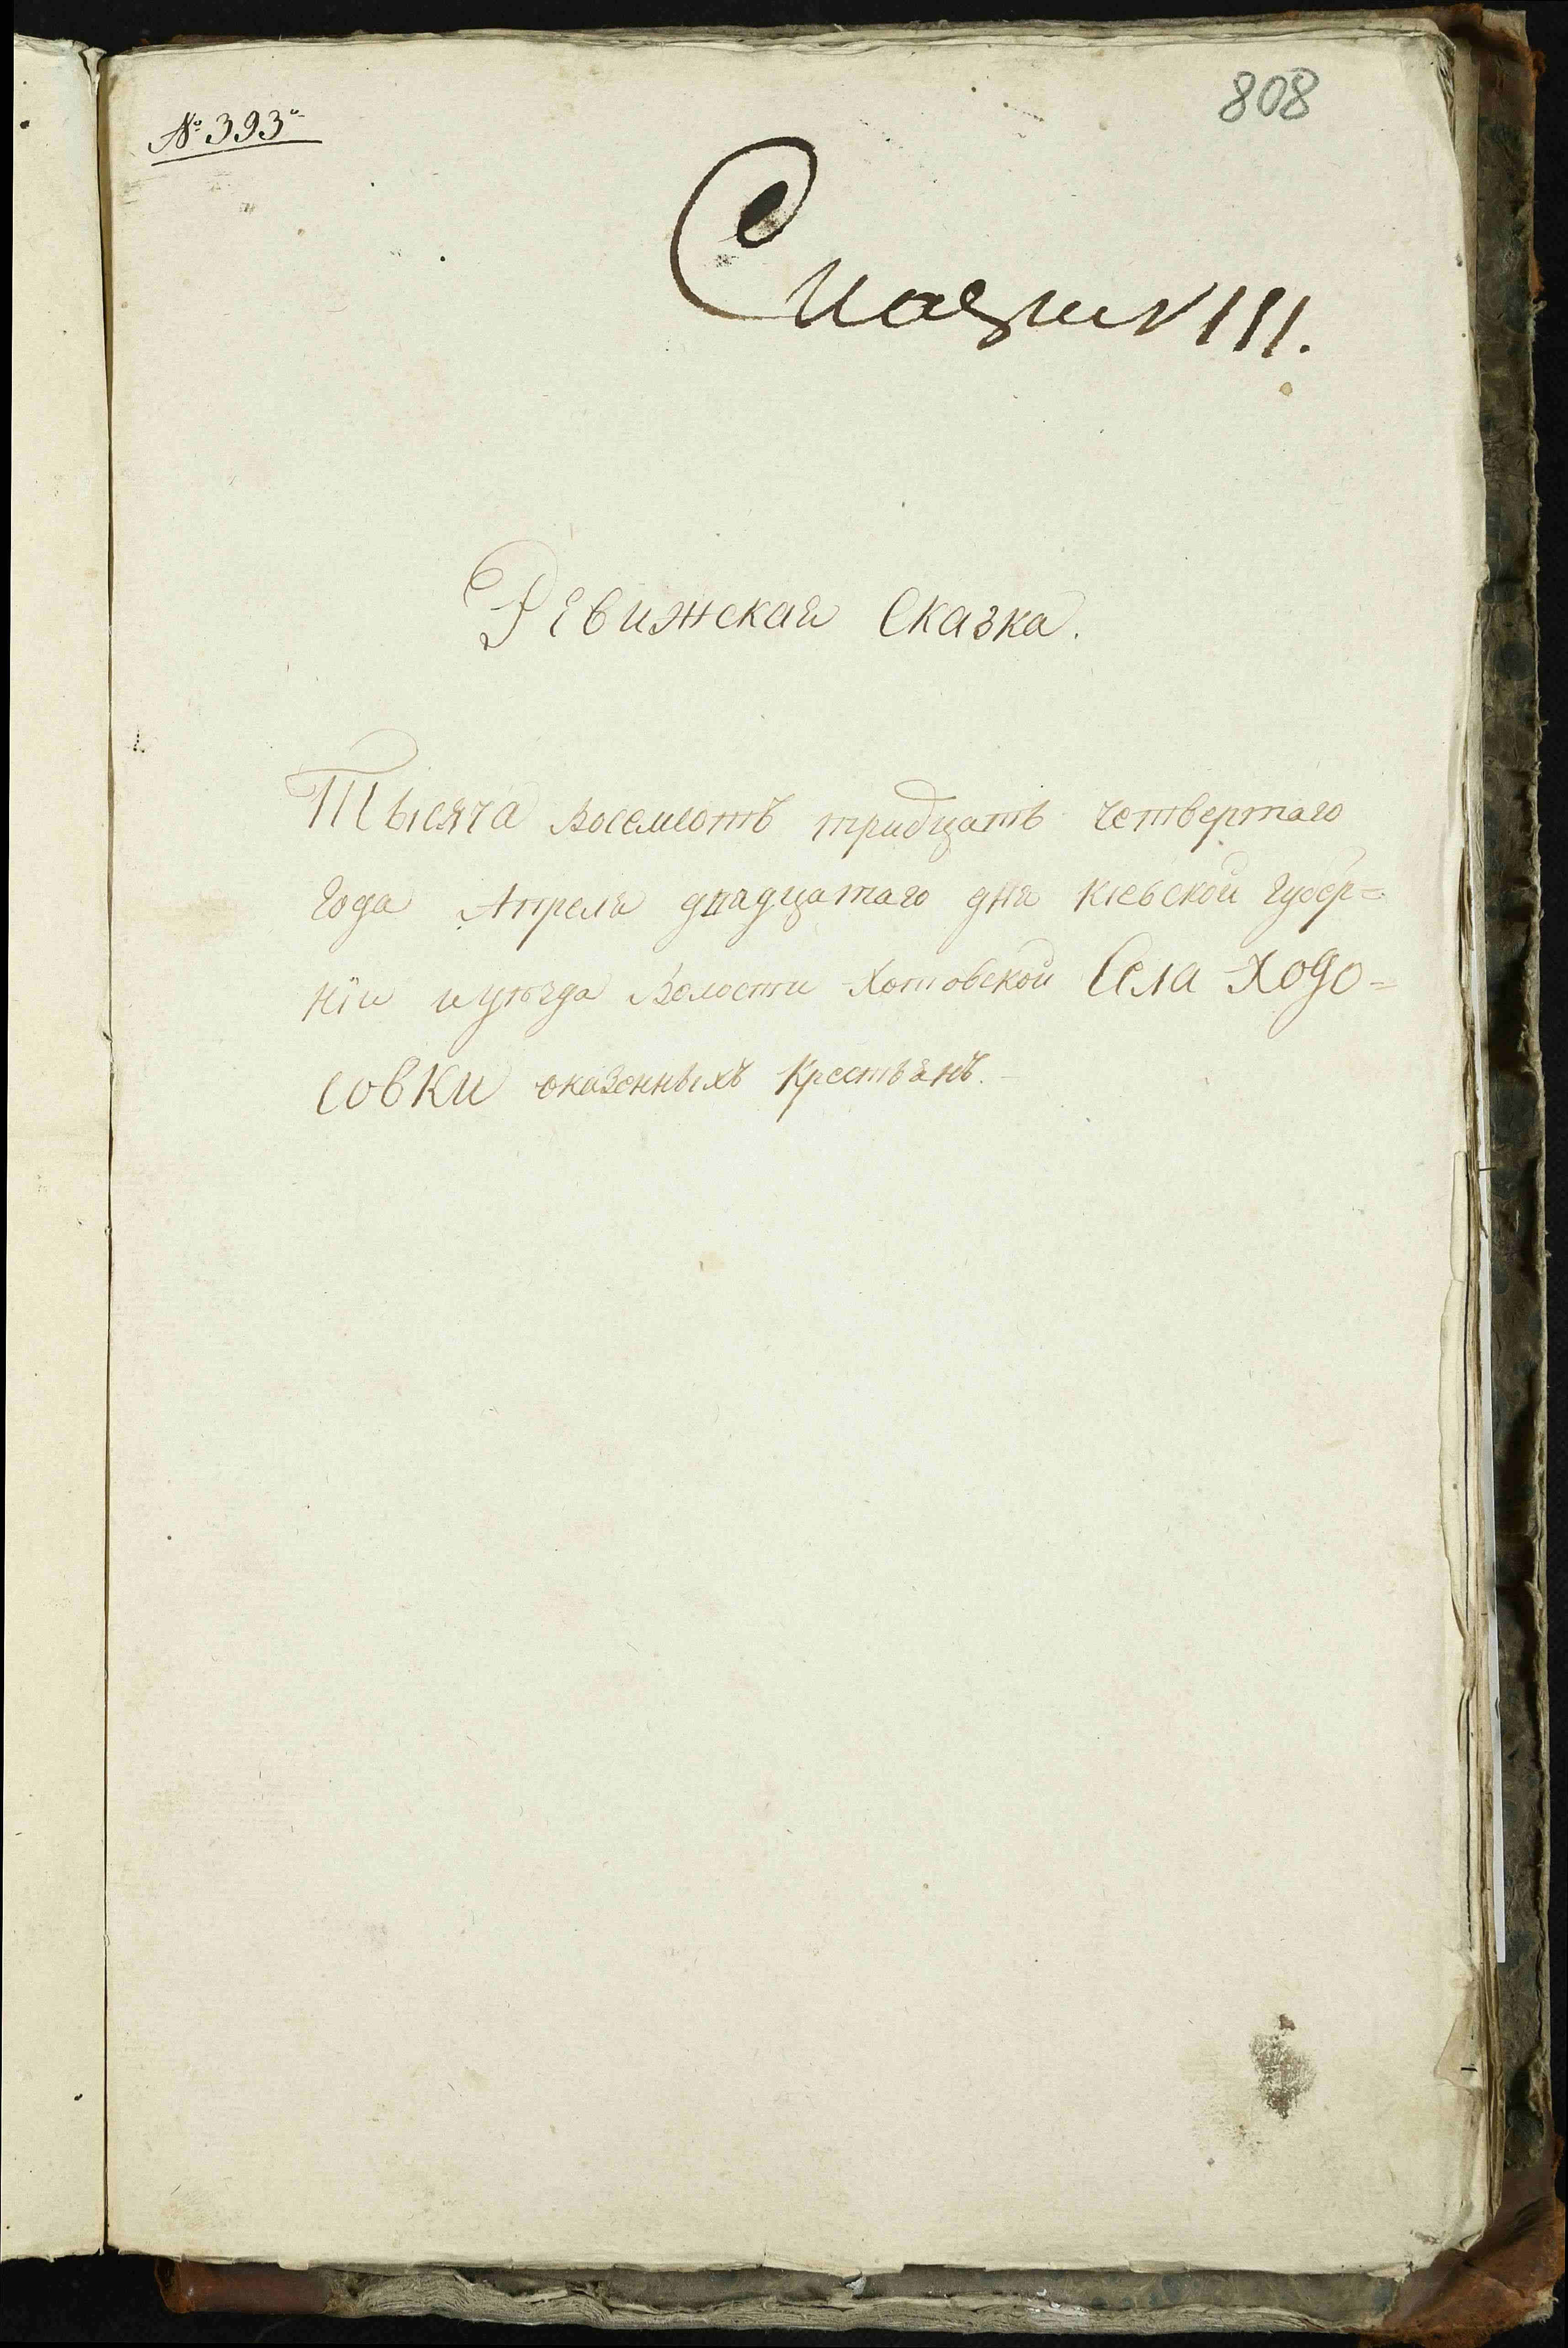 № 393й
808
Ревижская Сказка.
Тысяча восемсотъ тридцать четвертаго
года Апреля двадцатаго дня Кіевской губер=
ніи и уѣзда Волости Хотовской Села Ходо=
совки оказенныхъ Крестьянъ.